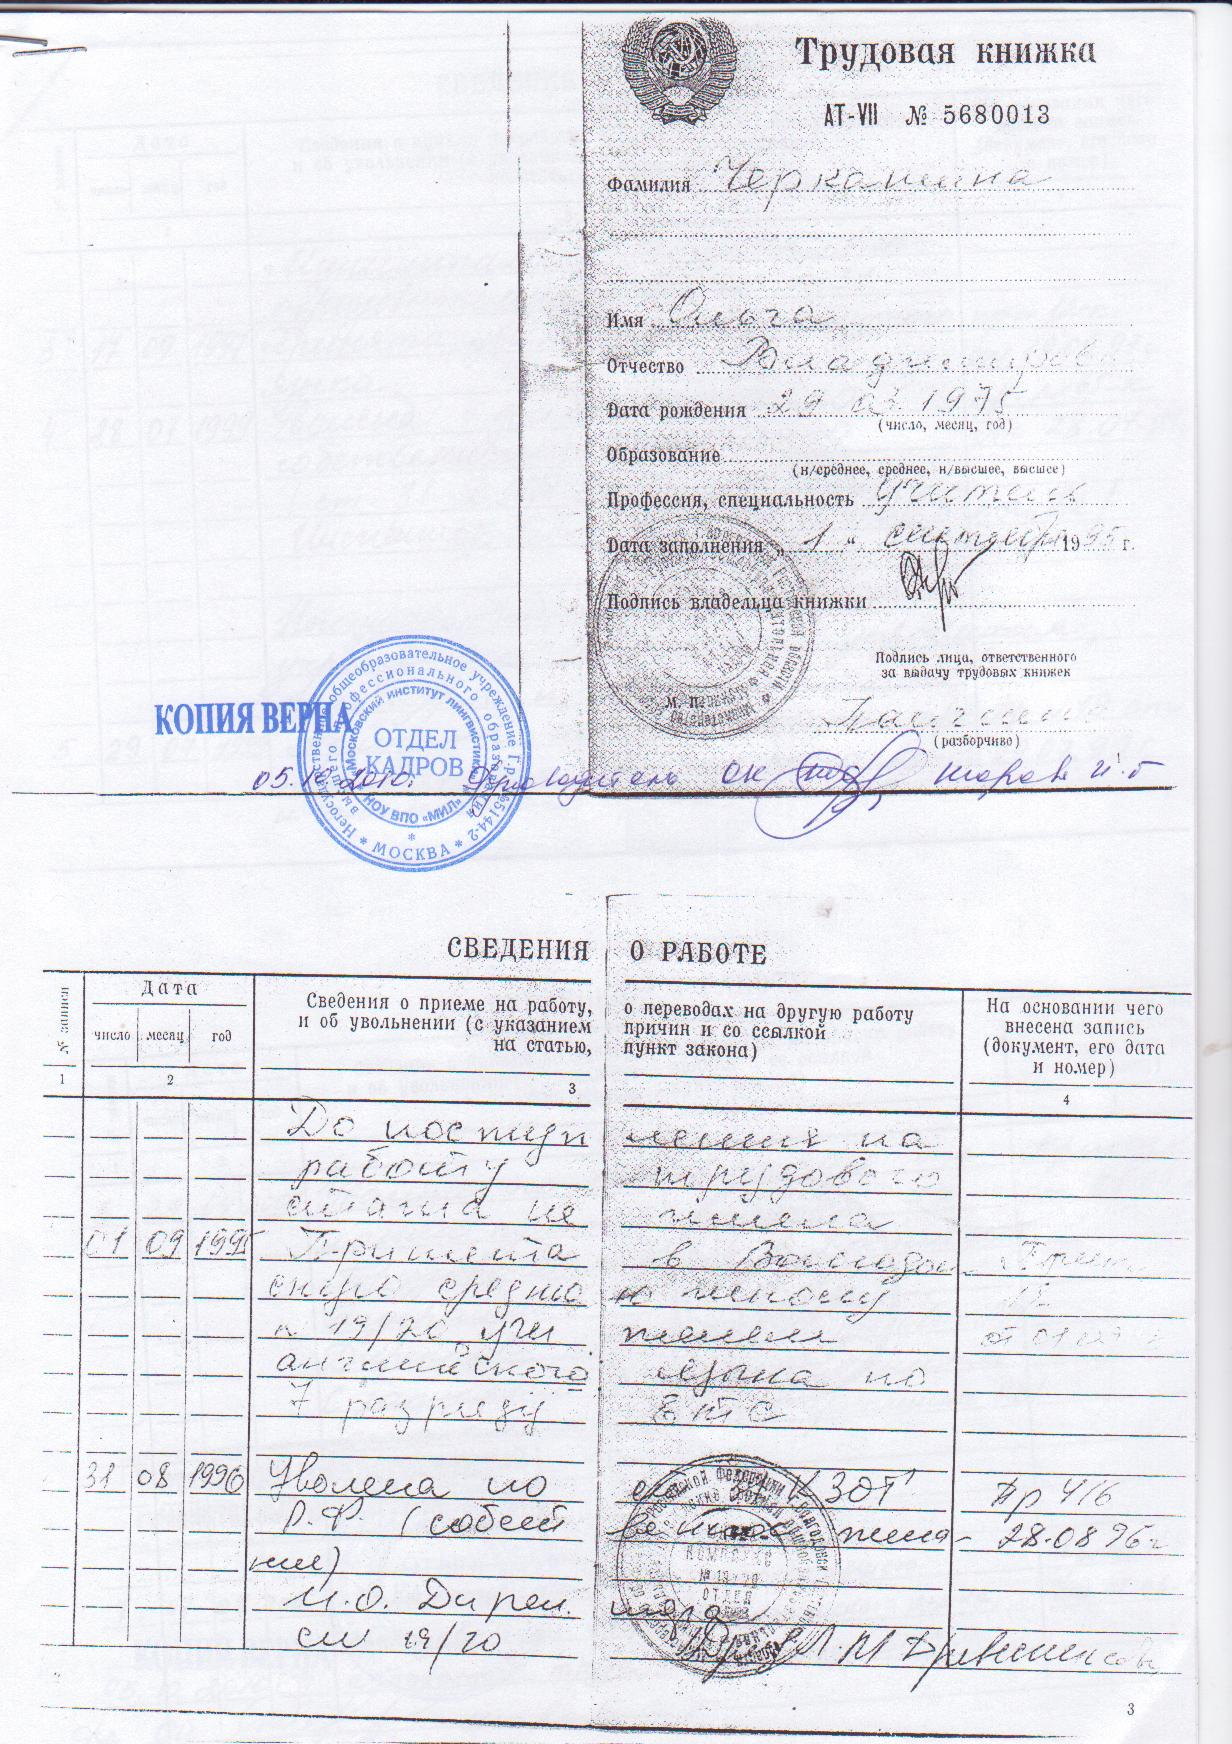 Трудовая книжка
АТ-VII № 5680013
Фамилия Черкашина
Имя Ольга
Отчество Владимиров
Дата рождения 29 03 1975
(число, месяц, год)
Образование
(н/среднее, среднее, н/высшее, высшее)
Профессия, специальность учитель
Дата заполнения „ 1 “ сентября 1995 г.
Подпись владельца книжки
Подпись лица, ответственного
за выдачу трудовых книжек
М. П.
(разборчиво)
КОПИЯ ВЕРНА
Негосударственное общеобразовательное учреждение
высшего профессионального образования
Московский институт лингвистики
НОУ ВПО «МИЛ»
* МОСКВА *
ОТДЕЛ
КАДРОВ
2010г. ОК
СВЕДЕНИЯ О РАБОТЕ
№ записи
Дата
число месяц год
Сведения о приеме на работу, о переводах на другую работу
и об увольнении (с указанием причин и со ссылкой
на статью, пункт закона)
На основании чего
внесена запись
(документ, его дата
и номер)
1 2 3 4
До поступления на
работу трудового
стажа не имела
01 09 1995 Принята в Волгодон
скую среднюю школу
№ 19/20 учителем
английского языка по
7 разряду ЕТС
31 08 1996 Уволена по ст 31 КЗОТ Пр 416
Р.Ф. (собственное жела- 28.08.96г
ние)
И.О. Директора
сш 19/20
3